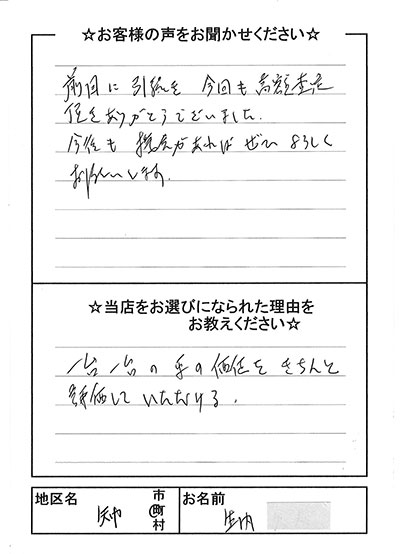 ☆お客様の声をお聞かせください☆
前回に引続き 今回も高額査定
をありがとうございました.
今後も 機会があれば ぜひ よろしく
お願いします.
☆当店をお選びになられた理由を
お教えください☆
一台一台の車の価値をきちんと
評価していただける.
地区名 市町村 お名前